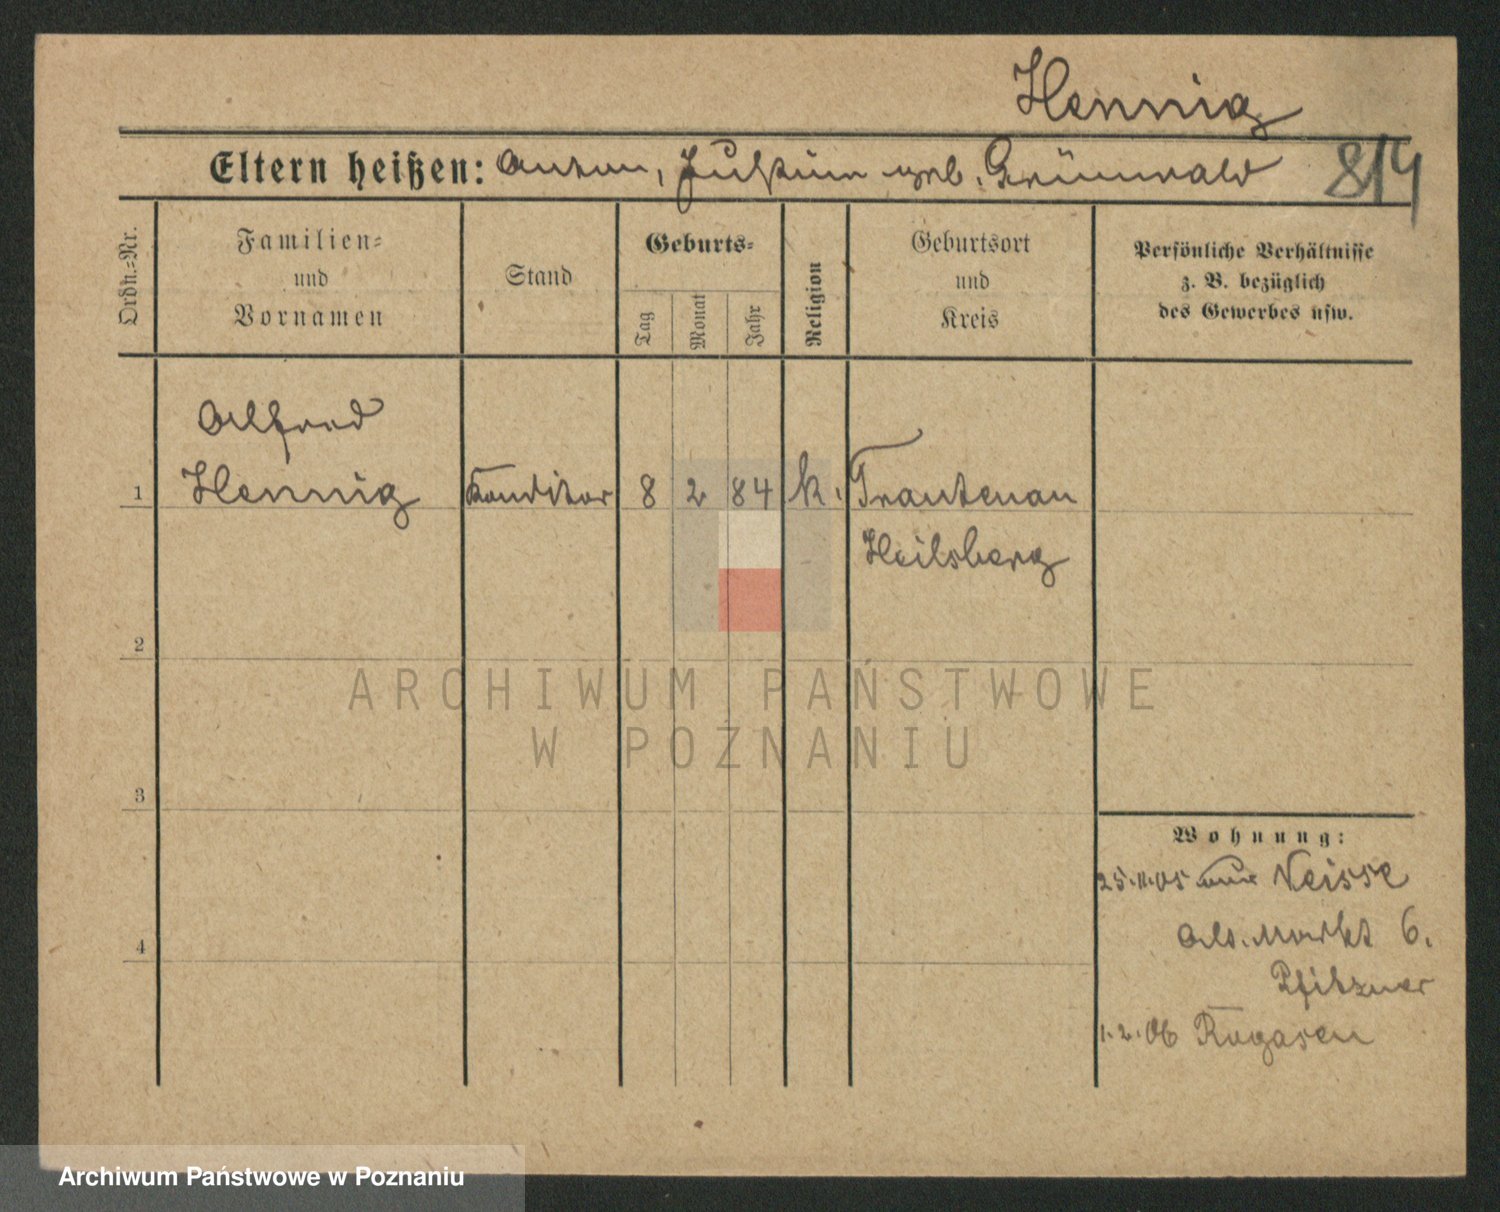 Hennig
Eltern heißen: Anton, Justine geb. Grünwald 8/4
Ordn.-Nr.
Familien-
und
Vornamen
Stand
Geburts-
Tag
Monat
Jahr
Religion
Geburtsort
und
Kreis
Persönliche Verhältnisse
z. B. bezüglich
des Gewerbes usw.
Alfred
1 Hennig Konditor 8 2 84 k. Trautenau
Heilsberg
2
3
4
Wohnung:
25.11.05 aus Neisse
Alt. Markt 6.
Pfitzner
1.2.06 Rogasen
ARCHIWUM PAŃSTWOWE
W POZNANIU
Archiwum Państwowe w Poznaniu